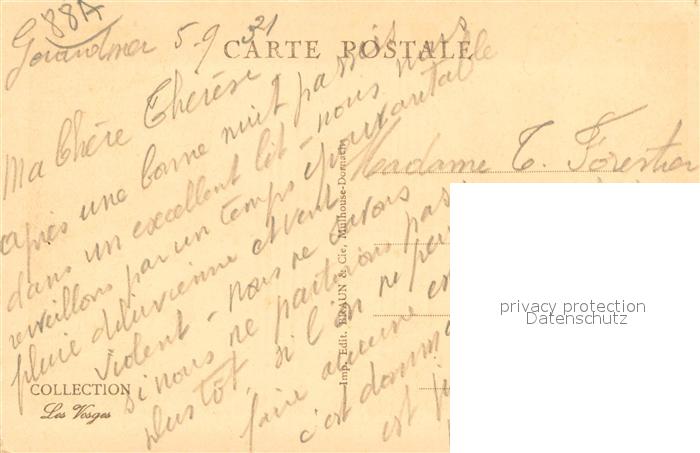 88A
Gérardmer 5-9 31
CARTE POSTALE
Ma Chère Thérèse
après une bonne nuit passée
dans un excellent lit - nous nous
reveillons par un temps épouvantable
pluie diluvienne et vent
violent - nous ne savons
si nous ne partirons pas
plus tôt, si l'on ne peu
faire aucune ex
c'est domm
est j
Madame T. Forestier
Imp. Edit. BRAUN & Cie, Mulhouse-Dornach
COLLECTION
Les Vosges
privacy protection
Datenschutz